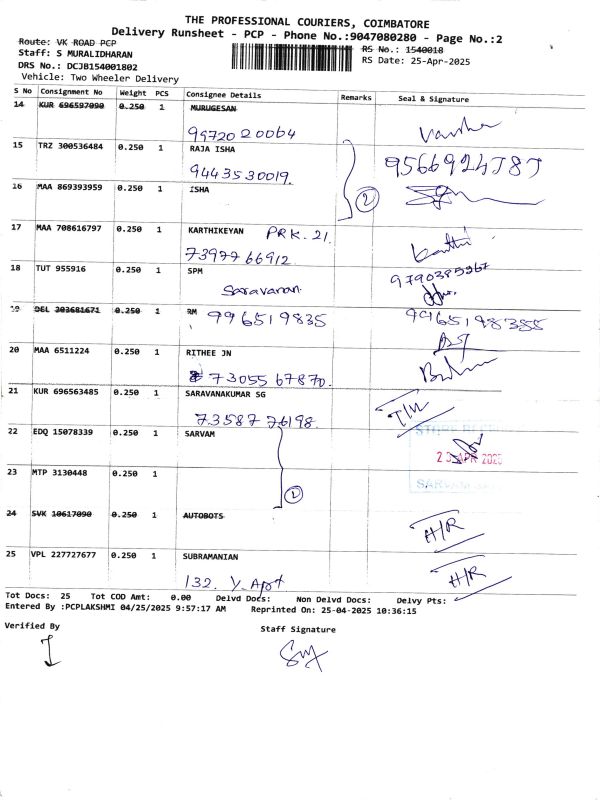 THE PROFESSIONAL COURIERS, COIMBATORE
Delivery Runsheet - PCP - Phone No.:9047080280 - Page No.:2
Route: VK ROAD PCP RS No.: 1540018
Staff: S MURALIDHARAN RS Date: 25-Apr-2025
DRS No.: DCJB154001802
Vehicle: Two Wheeler Delivery
S No Consignment No Weight PCS Consignee Details Remarks Seal & Signature
14 KUR 696597090 0.250 1 MURUGESAN
9972020064
15 TRZ 300536484 0.250 1 RAJA ISHA
9443530019.
16 MAA 869393959 0.250 1 ISHA
2
17 MAA 708616797 0.250 1 KARTHIKEYAN PRK. 21.
7397766912
18 TUT 955916 0.250 1 SPM
Saravanan
19 DEL 303681671 0.250 1 RM 996519835
20 MAA 6511224 0.250 1 RITHEE JN
73055 67870.
21 KUR 696563485 0.250 1 SARAVANAKUMAR SG
73587 76198
22 EDQ 15078339 0.250 1 SARVAM
23 MTP 3130448 0.250 1
24 SVK 10617090 0.250 1 AUTOBOTS
H/R
25 VPL 227727677 0.250 1 SUBRAMANIAN
132. Y. Apt H/R
Tot Docs: 25 Tot COD Amt: 0.00 Delvd Docs: Non Delvd Docs: Delvy Pts:
Entered By :PCPLAKSHMI 04/25/2025 9:57:17 AM Reprinted On: 25-04-2025 10:36:15
Verified By Staff Signature